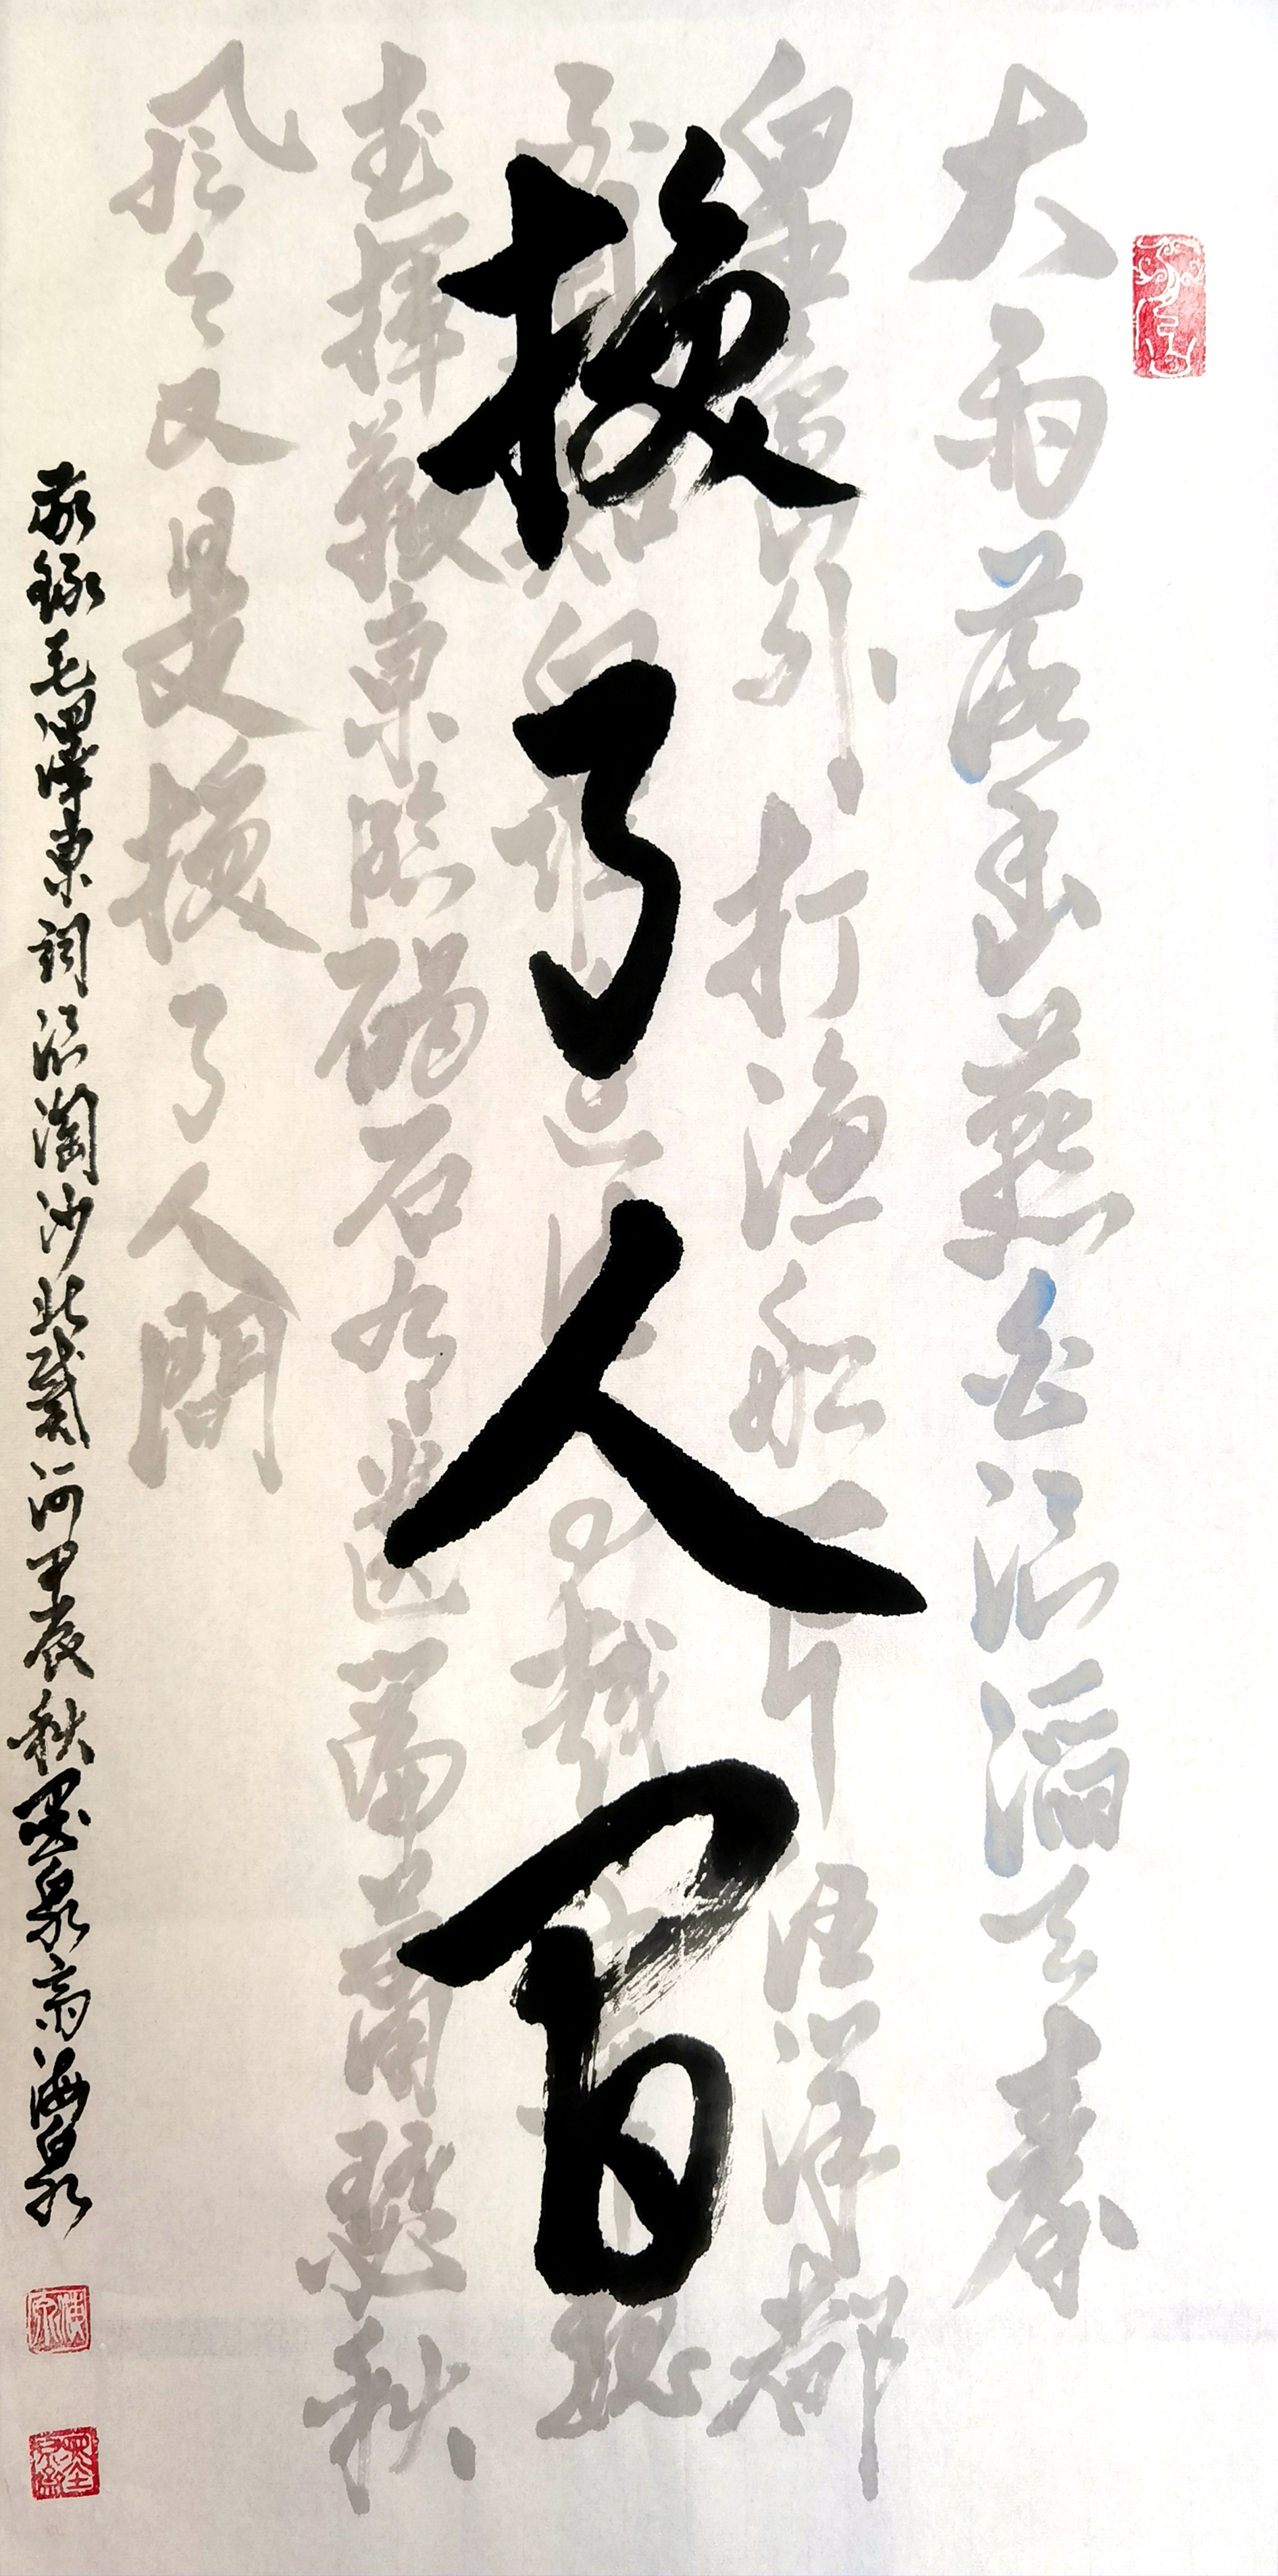 大雨落幽燕白浪滔天秦
皇島外打漁船一片汪洋都
不見知向誰邊往事越千年魏
武揮鞭東臨碣石有遺篇蕭瑟秋
風今又是換了人間
換了人间
敬錄毛澤東詞浪淘沙北戴河甲辰秋墨泉齋海泉